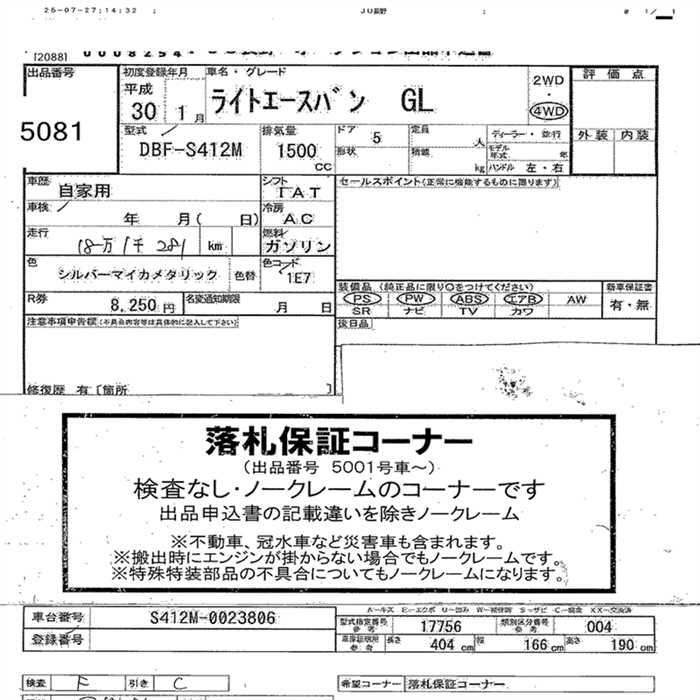 25-07-27;14:32 ; JU長野 ; # 1/ 1
[2088] 0008254
出品番号 初度登録年月 車名・グレード 評価点
平成 30 1月 ライトエースバン GL 2WD ・ 4WD
5081 型式 排気量 ドア 5 定員 人 ディーラー・並行 外装 内装
DBF-S412M 1500 CC 形状 積載 kg モデル年式 年 ハンドル 左・右
車歴 自家用 シフト IAT セールスポイント(正常に機能するものに限ります)
車検 年 月( 日) 冷房 AC
走行 18万1千281 km 燃料 ガソリン
色 シルバーマイカメタリック 色替 色コード 1E7
装備品 (純正品に限り○をつけてください) 新車保証書
R券 8,250円 名変通知期限 月 日 PS PW ABS エアB AW 有・無
SR ナビ TV カワ
注意事項申告欄(不具合内容等は具体的に記入して下さい) 後日品
修復歴 有 [箇所 ]
落札保証コーナー
(出品番号 5001号車~)
検査なし・ノークレームのコーナーです
出品申込書の記載違いを除きノークレーム
※不動車、冠水車など災害車も含まれます。
※搬出時にエンジンが掛からない場合でもノークレームです。
※特殊特装部品の不具合についてもノークレームになります。
車台番号 S412M-0023806 型式指定番号 参考 17756 類別区分番号 参考 004
登録番号 車検証積用 参考 長さ 404 cm 幅 166 cm 高さ 190 cm
検査 F 引き C 希望コーナー 落札保証コーナー